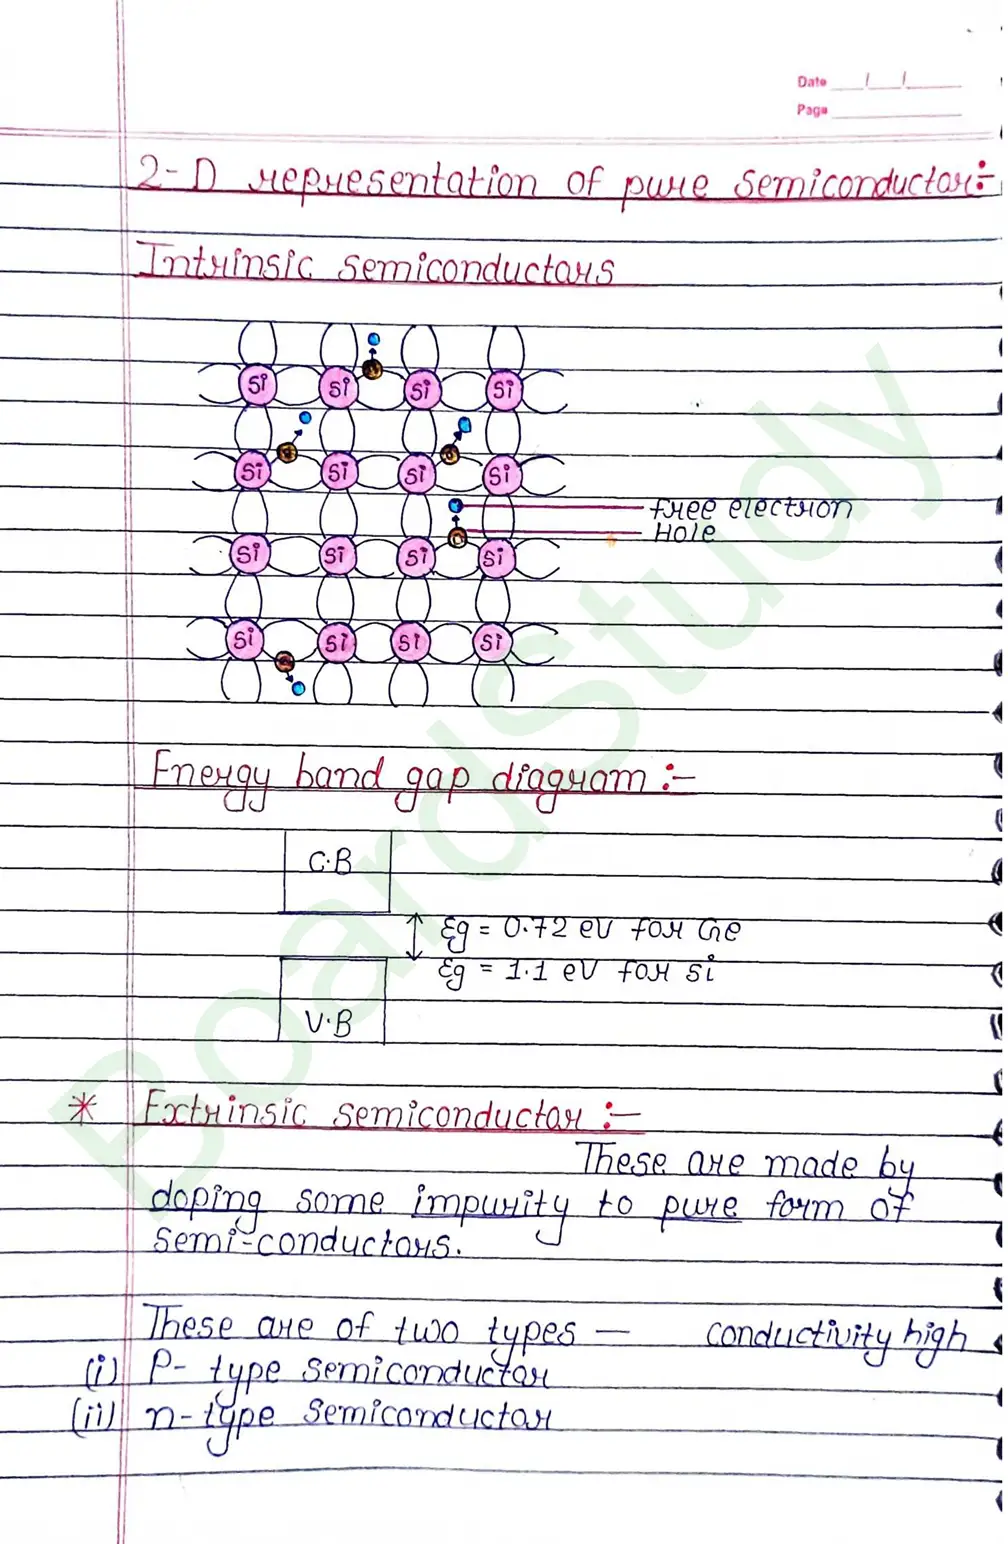 Date __/__/____
Page ________
2-D representation of pure semiconductor:-
Intrinsic semiconductors
Si Si Si Si
Si Si Si Si
free electron
Hole
Si Si Si Si
Si Si Si Si
Energy band gap diagram :-
C.B
Eg = 0.72 eV for Ge
Eg = 1.1 eV for si
V.B
* Extrinsic semiconductor :-
These are made by
doping some impurity to pure form of
semi-conductors.
These are of two types — conductivity high
(i) P- type semiconductor
(ii) n-type semiconductor
BoardStudy